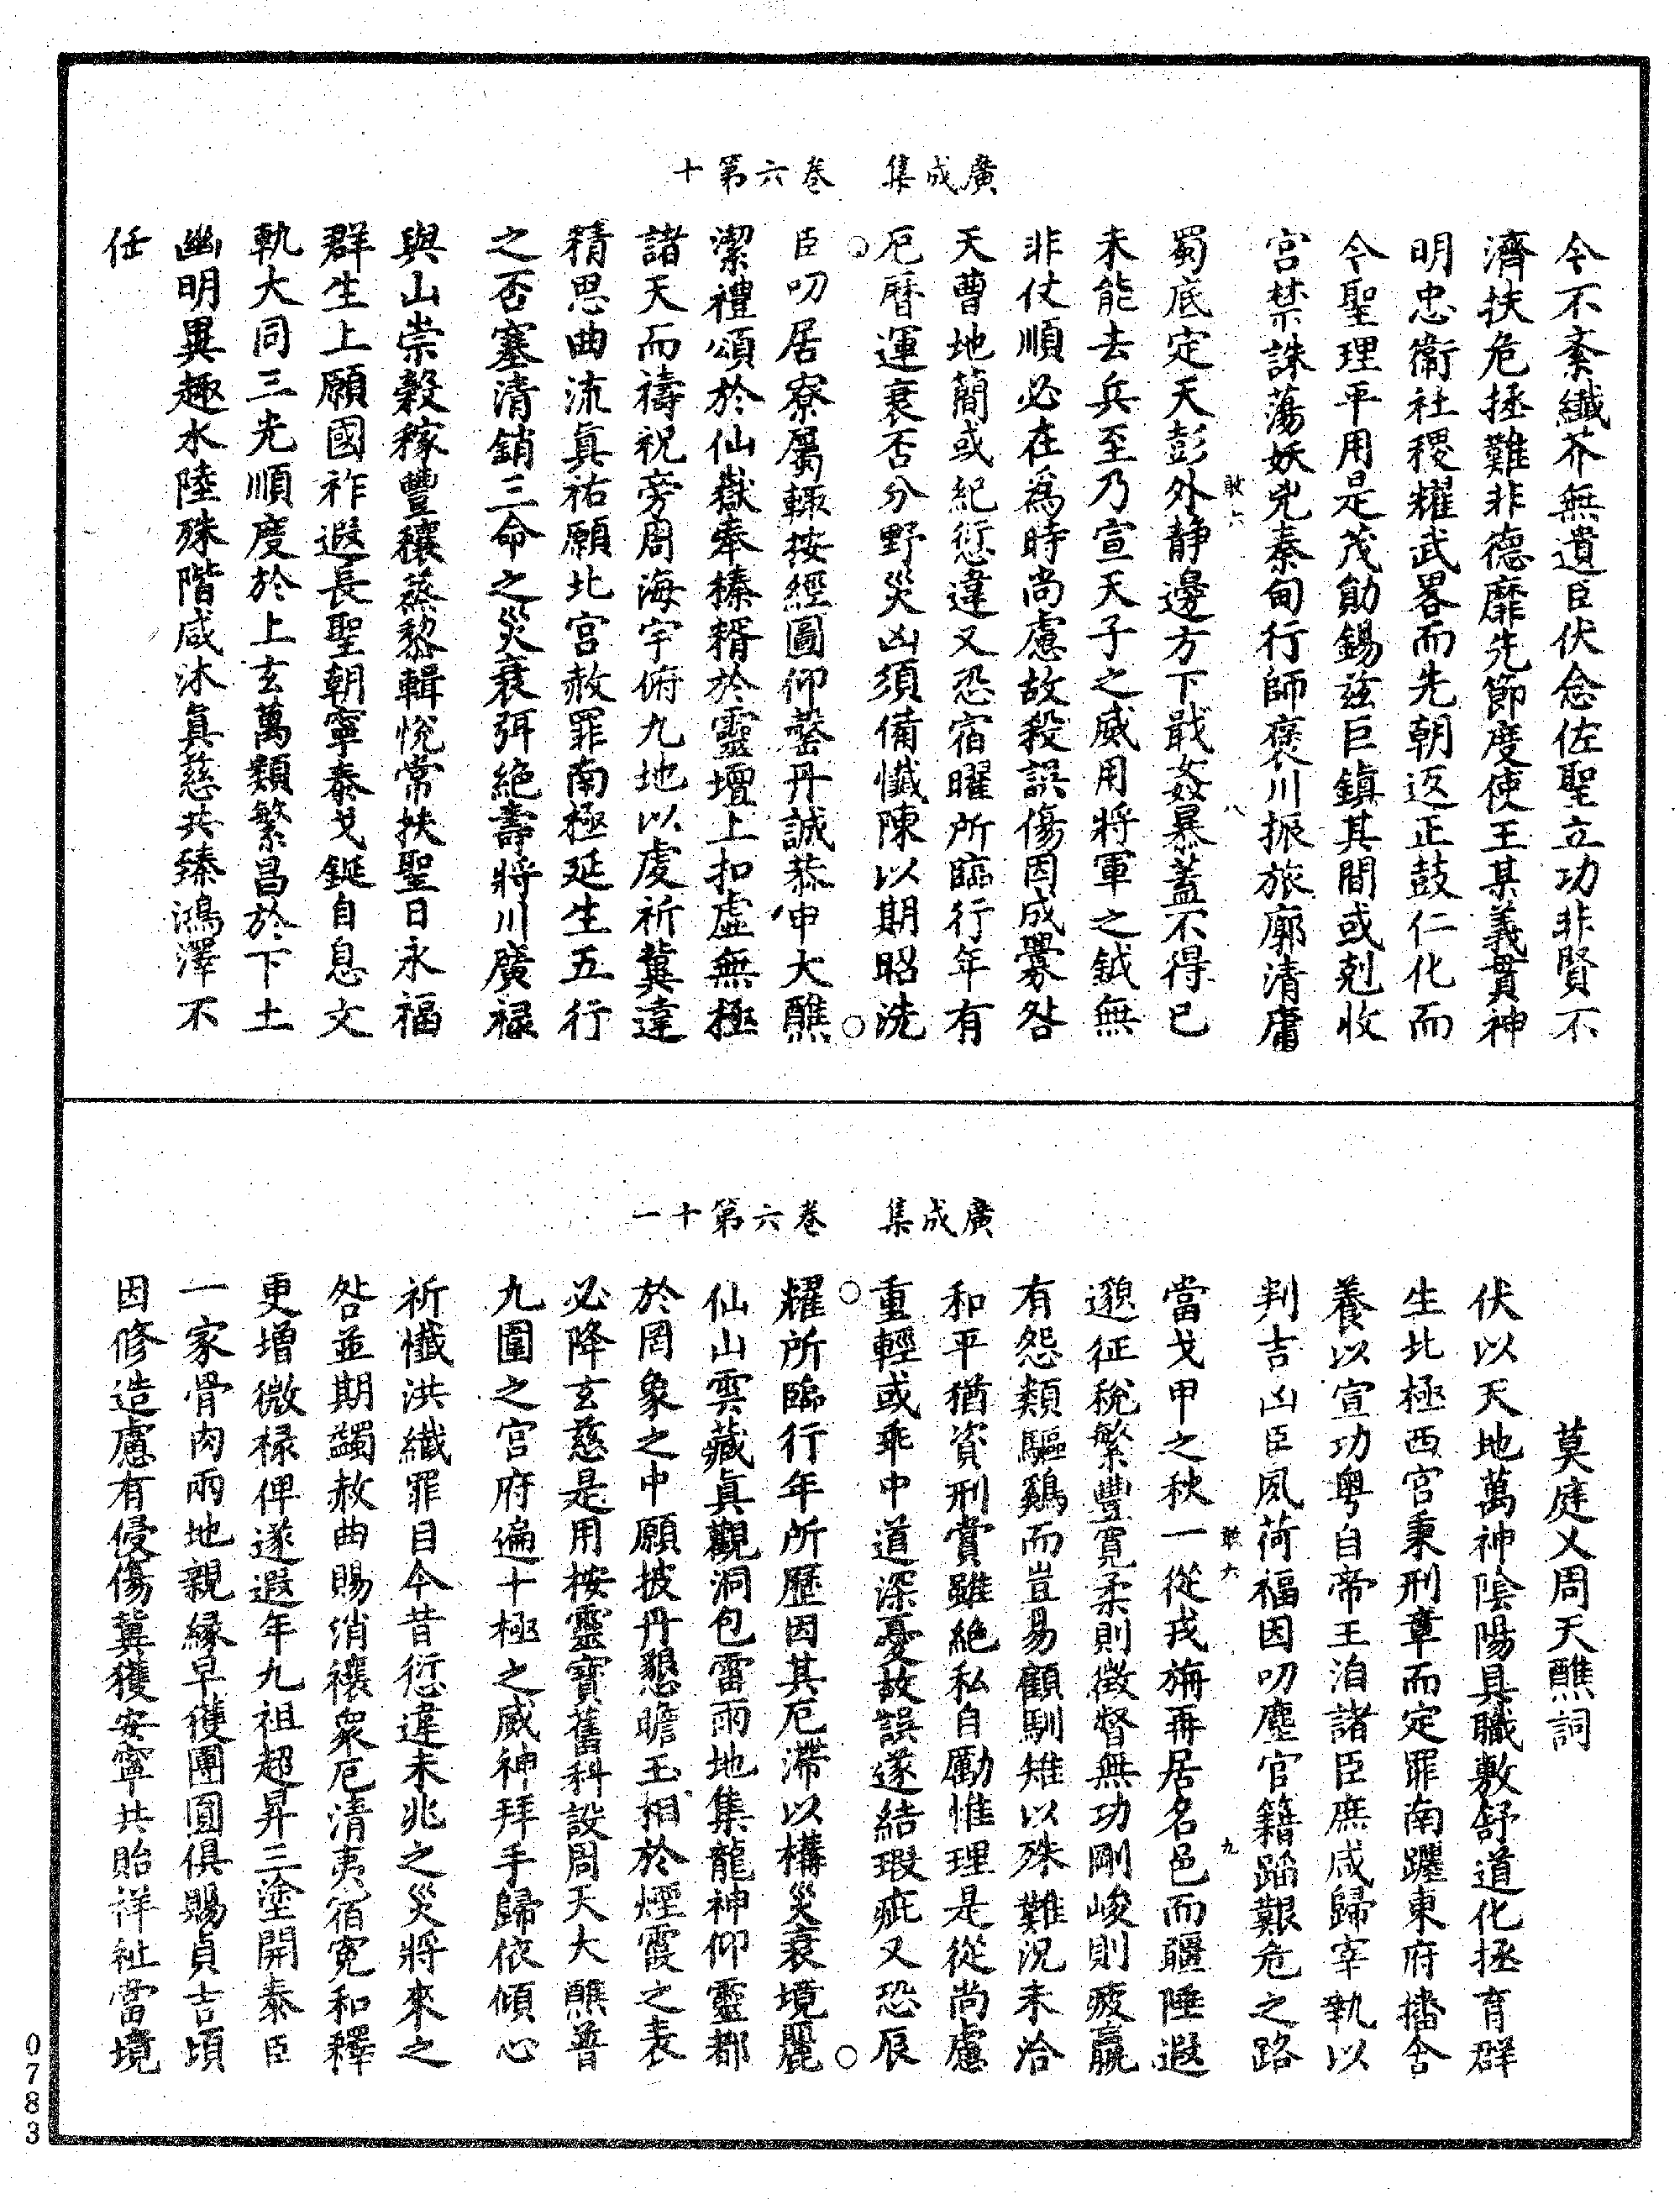 廣成集　卷六第十
今不紊纖芥無遺臣伏念佐聖立功非賢不
濟扶危拯難非德靡先節度使王某義貫神
明忠衛社稷耀武畧而先朝返正鼓仁化而
今聖理平用是茂勛錫茲巨鎮其間或剋收
宮禁誅蕩妖兇秦甸行師褒川振旅廓清庸
敢六　八
蜀底定天彭外静邊方下戢姦暴蓋不得已
未能去兵至乃宣天子之威用將軍之鉞無
非仗順必在爲時尚慮故殺誤傷因成釁咎
天曹地簡或紀愆違又恐宿曜所臨行年有
厄曆運衰否分野災凶須備懺陳以期昭洗
臣叨居寮屬輒按經圖仰罄丹誠恭申大醮
潔禮頌於仙嶽奉榛糈於靈壇上扣虛無極
諸天而禱祝旁周海宇俯九地以虔祈冀違
精思曲流眞祐願北宮赦罪南極延生五行
之否塞清銷三命之災衰弭絶壽將川廣祿
與山崇穀稼豐穰蒸黎輯悅常扶聖日永福
群生上願國祚遐長聖朝寧泰戈鋋自息文
軌大同三光順度於上玄萬類繁昌於下土
幽明異趣水陸殊階咸沐眞慈共臻鴻澤不
任
廣成集　卷六第十一
莫庭乂周天醮詞
伏以天地萬神陰陽具職敷舒道化拯育群
生北極西官秉刑章而定罪南躔東府播含
養以宣功粤自帝王洎諸臣庶咸歸宰執以
判吉凶臣夙荷福因叨塵官籍蹈艱危之路
敢六　九
當戈甲之秋一從戎旃再居名邑而疆陲遐
邈征稅繁豐寬柔則徵督無功剛峻則疲羸
有怨類驅鷄而豈易顧馴雉以殊難況未洽
和平猶資刑賞雖絶私自勵惟理是從尚慮
重輕或乖中道深憂故誤遂結瑕疵又恐辰
耀所臨行年所歷因其厄滯以構災衰境麗
仙山雲藏眞觀洞包雷雨地集龍神仰靈都
於罔象之中願披丹懇瞻玉相於煙霞之表
必降玄慈是用按靈寶舊科設周天大醮普
九圍之宮府遍十極之威神拜手歸依傾心
祈懺洪纖罪目今昔愆違未兆之災將來之
咎並期蠲赦曲賜消禳衆厄清夷宿寃和釋
更增微祿俾遂遐年九祖超昇三塗開泰臣
一家骨肉兩地親縁早獲團圓俱賜貞吉頃
因修造慮有侵傷冀獲安寧共貽祥祉當境
0783